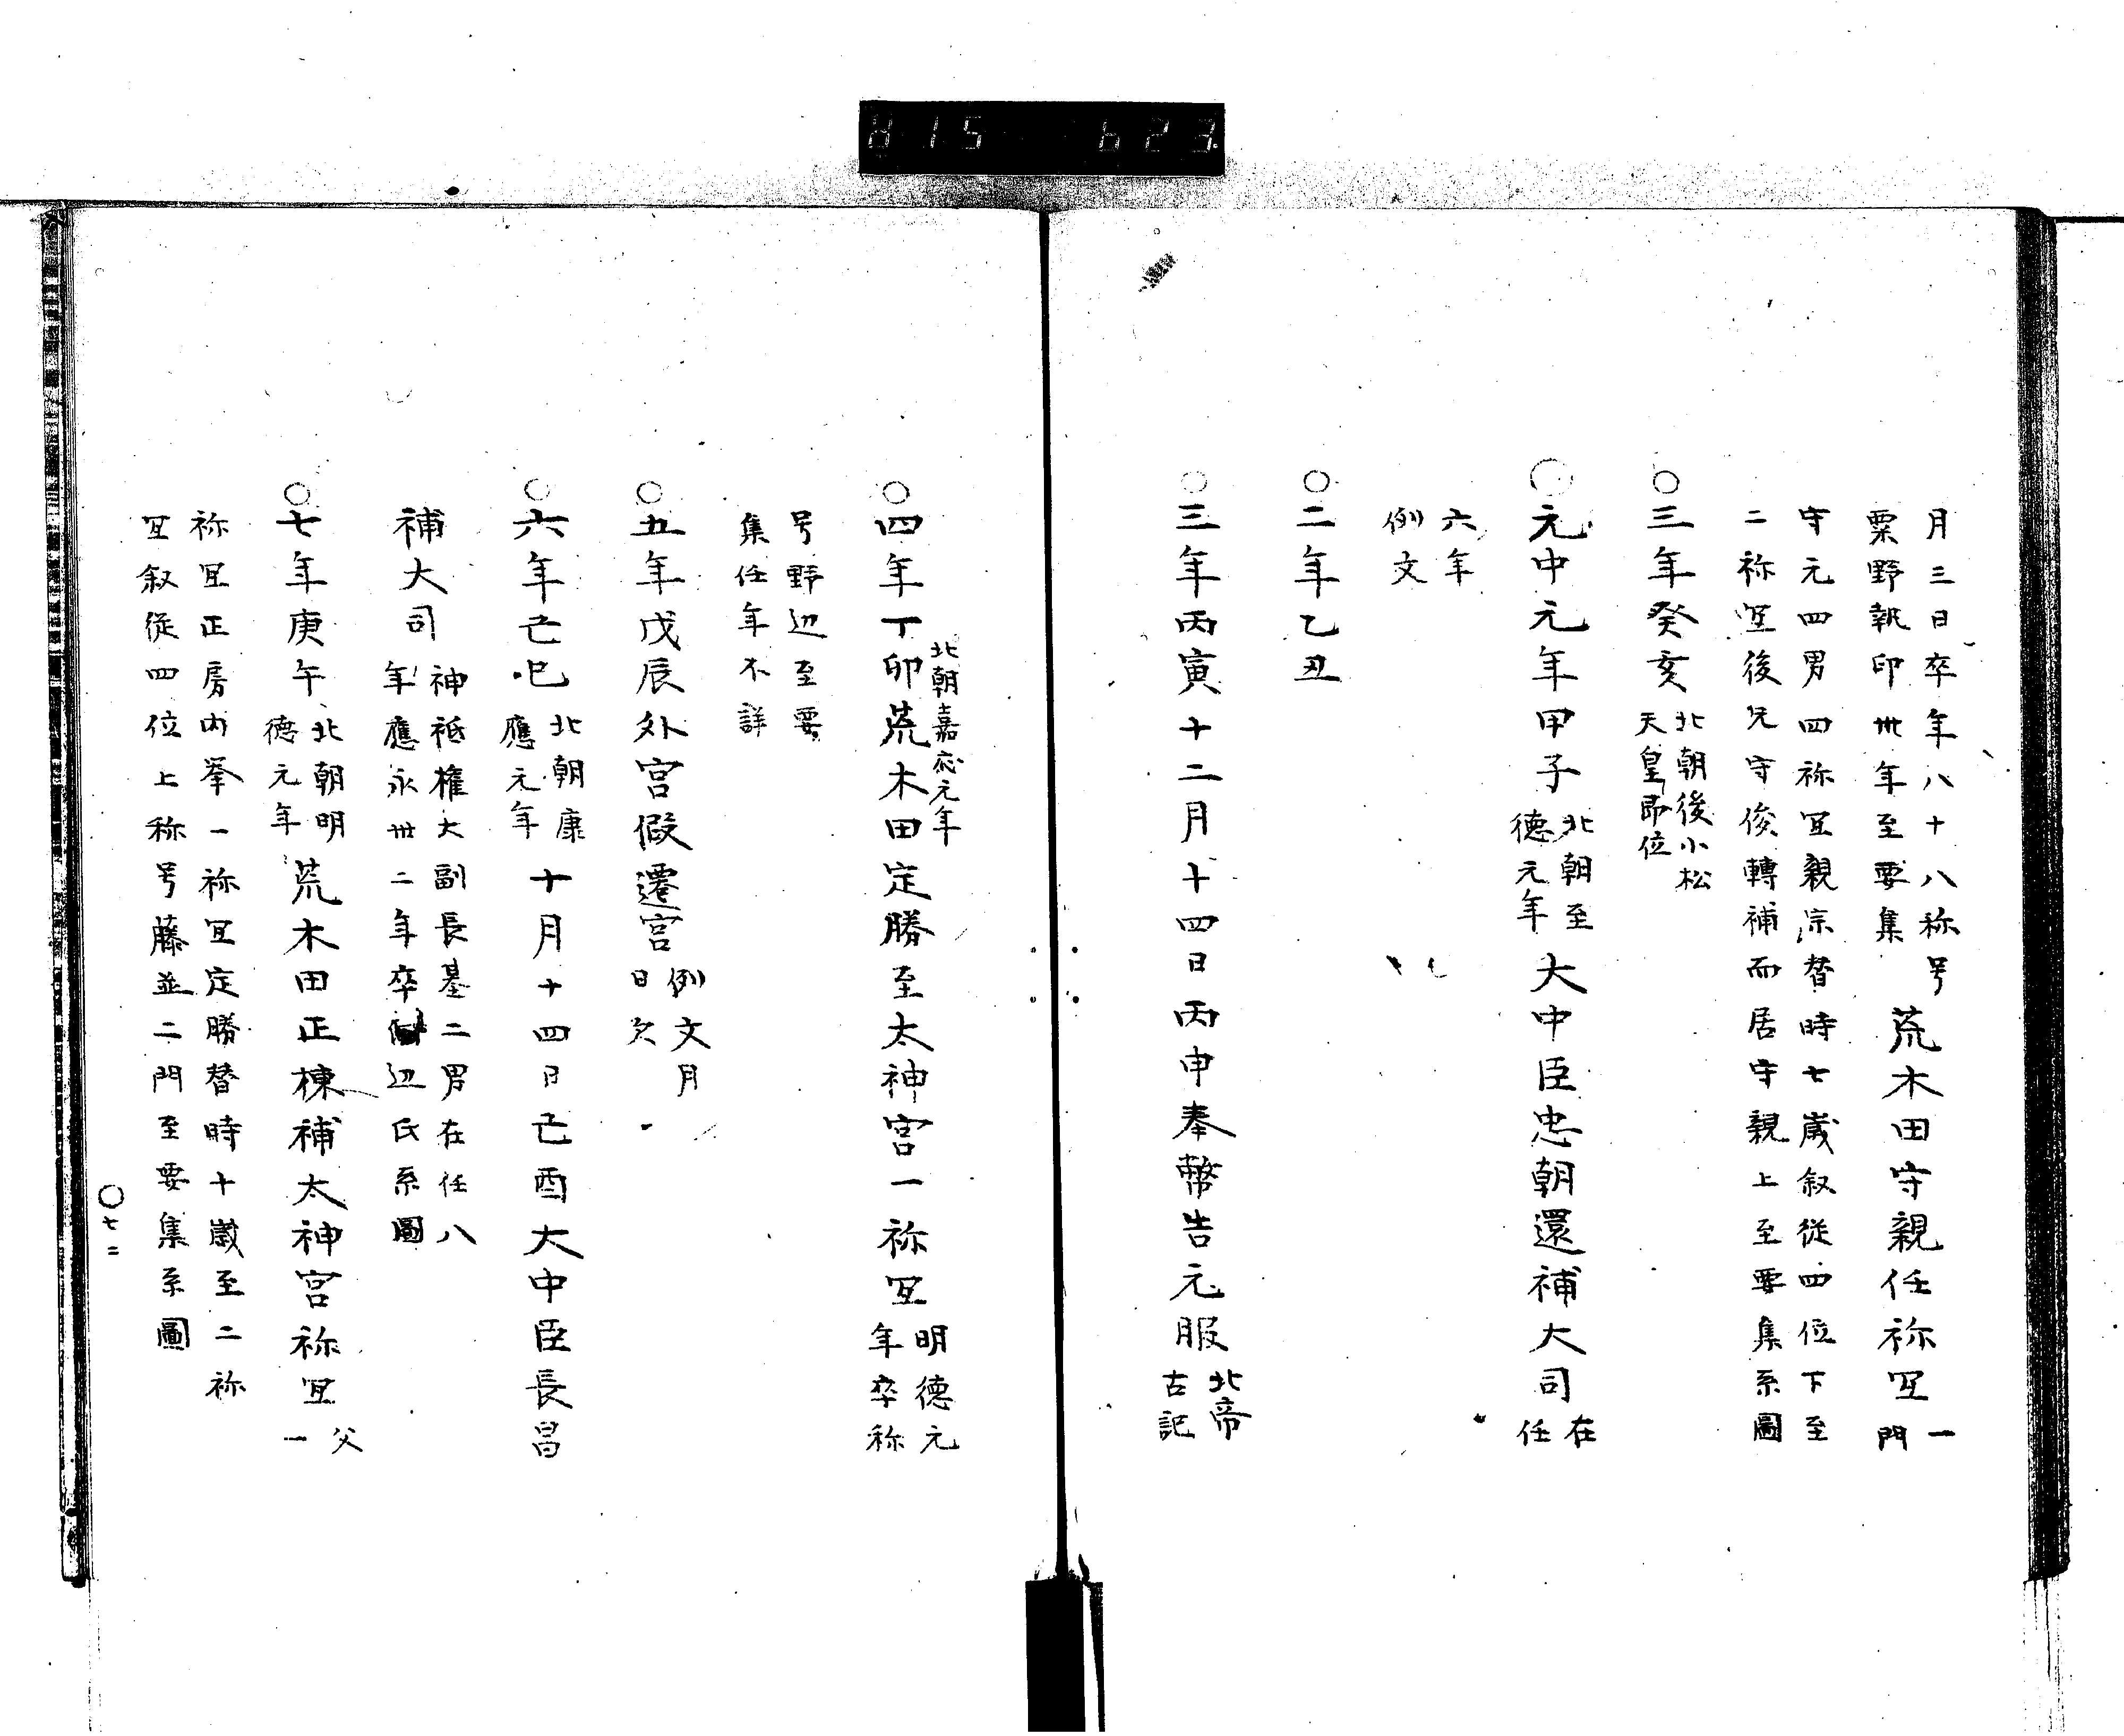 815 623
月三日卒年八十八称号
粟野執印卅年至要集
荒木田守親任祢冝
一
門
守元四男四祢冝親宗替時七歳叙従四位下至
二祢冝後兄守俊轉補而居守親上至要集系圖
○三年癸亥
北朝後小松
天皇即位
○元中元年甲子
北朝至
徳元年
大中臣忠朝還補大司
在
任
六年
例文
○二年乙丑
○三年丙寅十二月十四日丙申奉幣告元服
北帝
古記
○四年丁卯
北朝嘉応元年
荒木田定勝至太神宮一祢冝
明德元
年卒称
号野辺至要
集任年不詳
○五年戊辰外宮假遷宮
例文月
日欠
○六年己巳
北朝康
應元年
十月十四日己酉大中臣長昌
補大司
神祇権大副長基二男在任八
年應永卅二年卒辺氏系圖
○七年庚午
北朝明
德元年
荒木田正棟補太神宮祢冝
父
一
祢冝正房内挙一祢冝定勝替時十歳至二祢
冝叙従四位上称号藤並二門至要集系圖
○七二